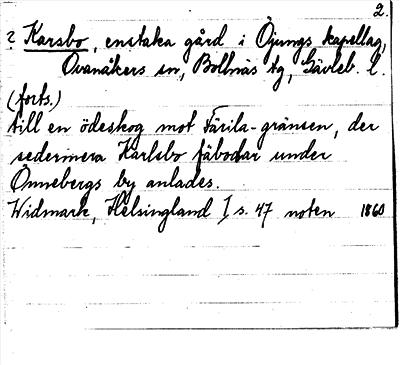 2.
? Karsbo, enstaka gård i Öjungs kapellag,
Ovanåkers sn, Bollnäs tg, Gävleb. l.
(forts.)
till en ödeskog mot Färila-gränsen, der
sedermera Karlsbo fäbodar under
Önnebergs by anlades.
Widmark, Helsingland I s. 47 noten 1860